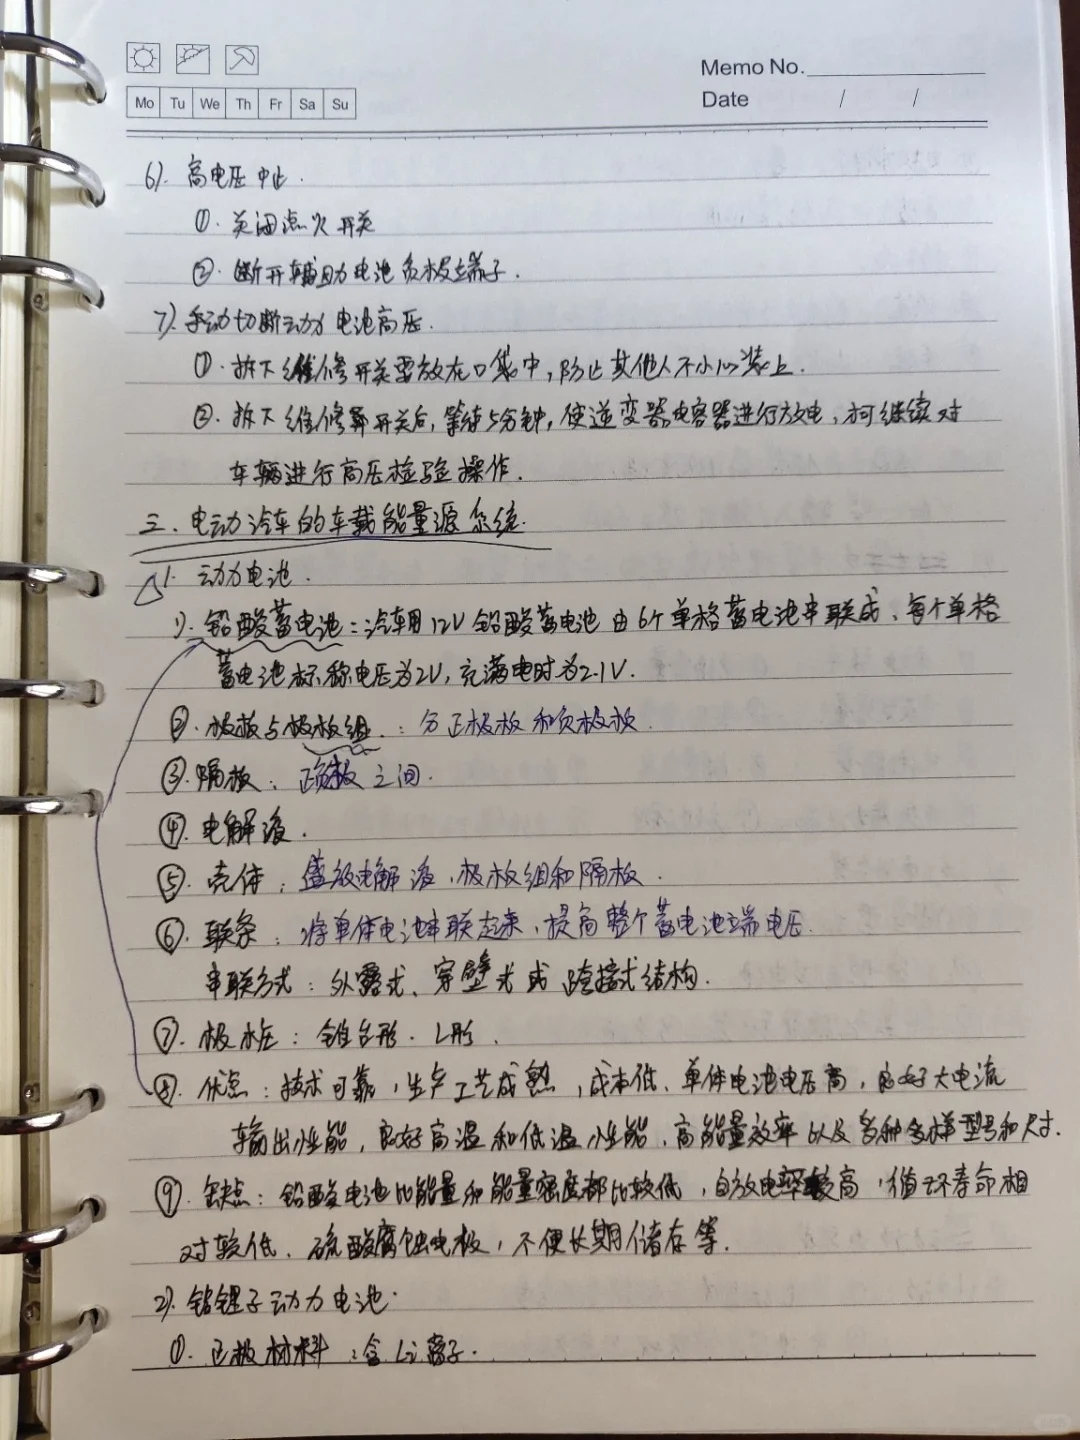 Memo No.
Mo Tu We Th Fr Sa Su
Date / /
6). 高电压中止.
①. 关闭点火开关
②. 断开辅助电池负极端子.
7). 手动切断动力电池高压.
①. 拆下维修开关要放在口袋中,防止其他人不小心装上.
②. 拆下维修开关后,等待5分钟,使逆变器电容器进行放电,才可继续对
车辆进行高压检验操作.
三. 电动汽车的车载能量源系统.
△1. 动力电池.
1). 铅酸蓄电池:汽车用12V铅酸蓄电池由6个单格蓄电池串联成、每个单格
蓄电池标称电压为2V,充满电时为2.1V.
②. 极板与极板组.:分正极板和负极板.
③. 隔板:正负极板之间.
④. 电解液.
⑤. 壳体:盛放电解液、极板组和隔板.
⑥. 联条:将单体电池串联起来、提高整个蓄电池端电压.
串联方式:外露式、穿壁式或跨接式结构.
⑦. 极柱:锥台形. L形.
⑧. 优点:技术可靠,生产工艺成熟,成本低、单体电池电压高,良好大电流
输出性能,良好高温和低温性能、高能量效率以及多种多样型号和尺寸.
⑨. 缺点:铅酸电池比能量和能量密度都比较低,自放电率较高,循环寿命相
对较低、硫酸腐蚀电极,不便长期储存等.
2). 锂子动力电池.
①. 正极材料:含Li离子.